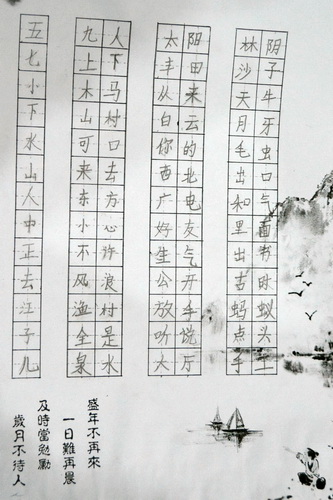 五 九人 太阳 林阴
七 上下 丰田 沙子
小 木马 从来 天牛
下 山村 白云 月牙
水 可口 你的 毛虫
山 来去 西北 出口
人 东方 广电 和气
中 小心 好友 里面
正 不许 生气 出书
去 风浪 公开 古时
江 渔村 放手 蚂蚁
子 全是 听说 点头
儿 泉水 大厅 手
盛年不再來
一日難再晨
及時當勉勵
歲月不待人